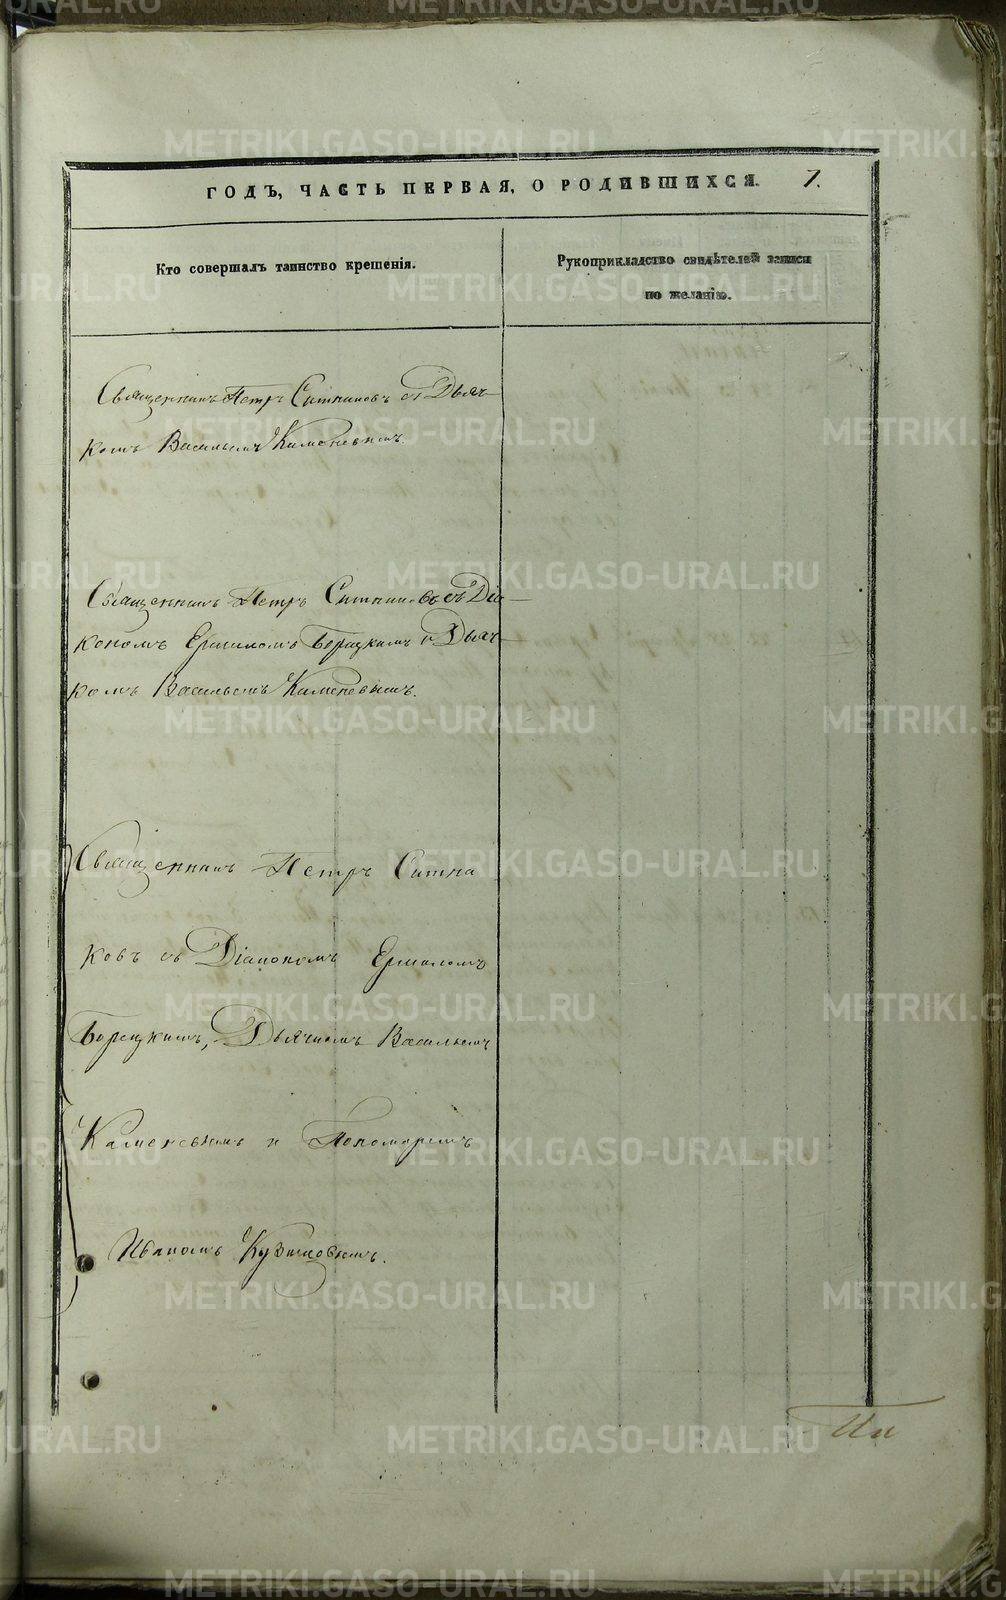 ГОДЪ, ЧАСТЬ ПЕРВАЯ, О РОДИВШИХСЯ. 7.
Кто совершалъ таинство крещенія.
Рукоприкладство свидѣтелей записи
по желанію.
Священникъ Петръ Ситниковъ съ Дьяч-
комъ Васильемъ Каменевымъ.
Священникъ Петръ Ситниковъ съ Діа-
кономъ Ермиломъ Борецкимъ и Дьяч-
комъ Васильемъ Каменевымъ.
Священникъ Петръ Ситни
ковъ съ Діакономъ Ермиломъ
Борецкимъ, Дьячкомъ Васильемъ
Каменевымъ и Пономаремъ
Иваномъ Кузминовымъ.
METRIKI.GASO-URAL.RU